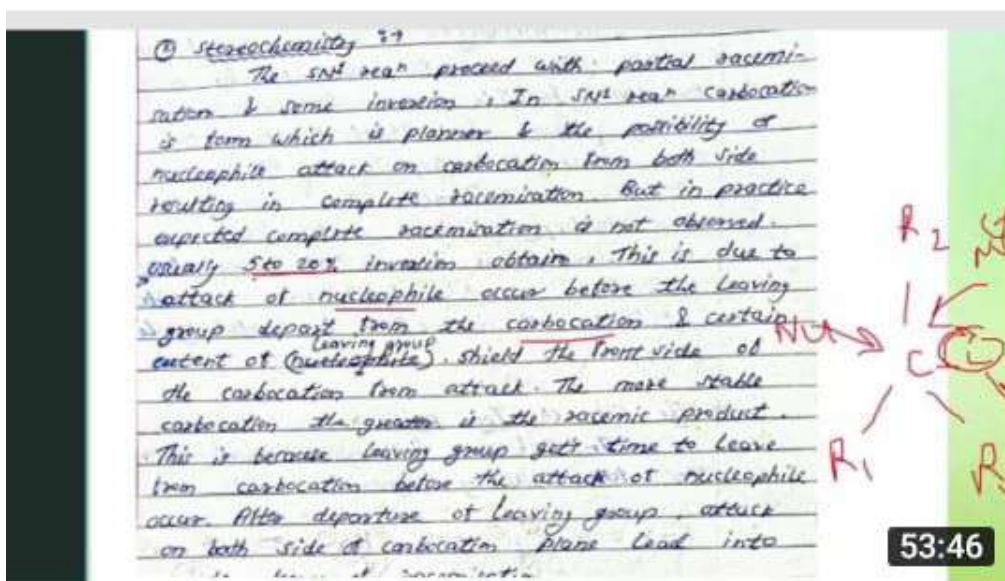 ② Stereochemistry :→
The SN1 reaⁿ proceed with partial racemi-
sation & some inversion. In SN1 reaⁿ carbocation
is form which is planner & the possibility of
nucleophile attack on carbocation from both side
resulting in complete racemization. But in practice
expected complete racemization is not observed.
usually 5 to 20% inversion obtain. This is due to
attack of nucleophile occur before the leaving
group depart from the carbocation & certain
leaving group
extent of (nucleophile). shield the front side of
the carbocation from attack. The more stable
carbocation the greater is the racemic product.
This is because leaving group gets time to leave
from carbocation before the attack of nucleophile
occur. After departure of leaving group, attack
on both side of carbocation plane lead into
R2
Nu
C
R1
R
53:46